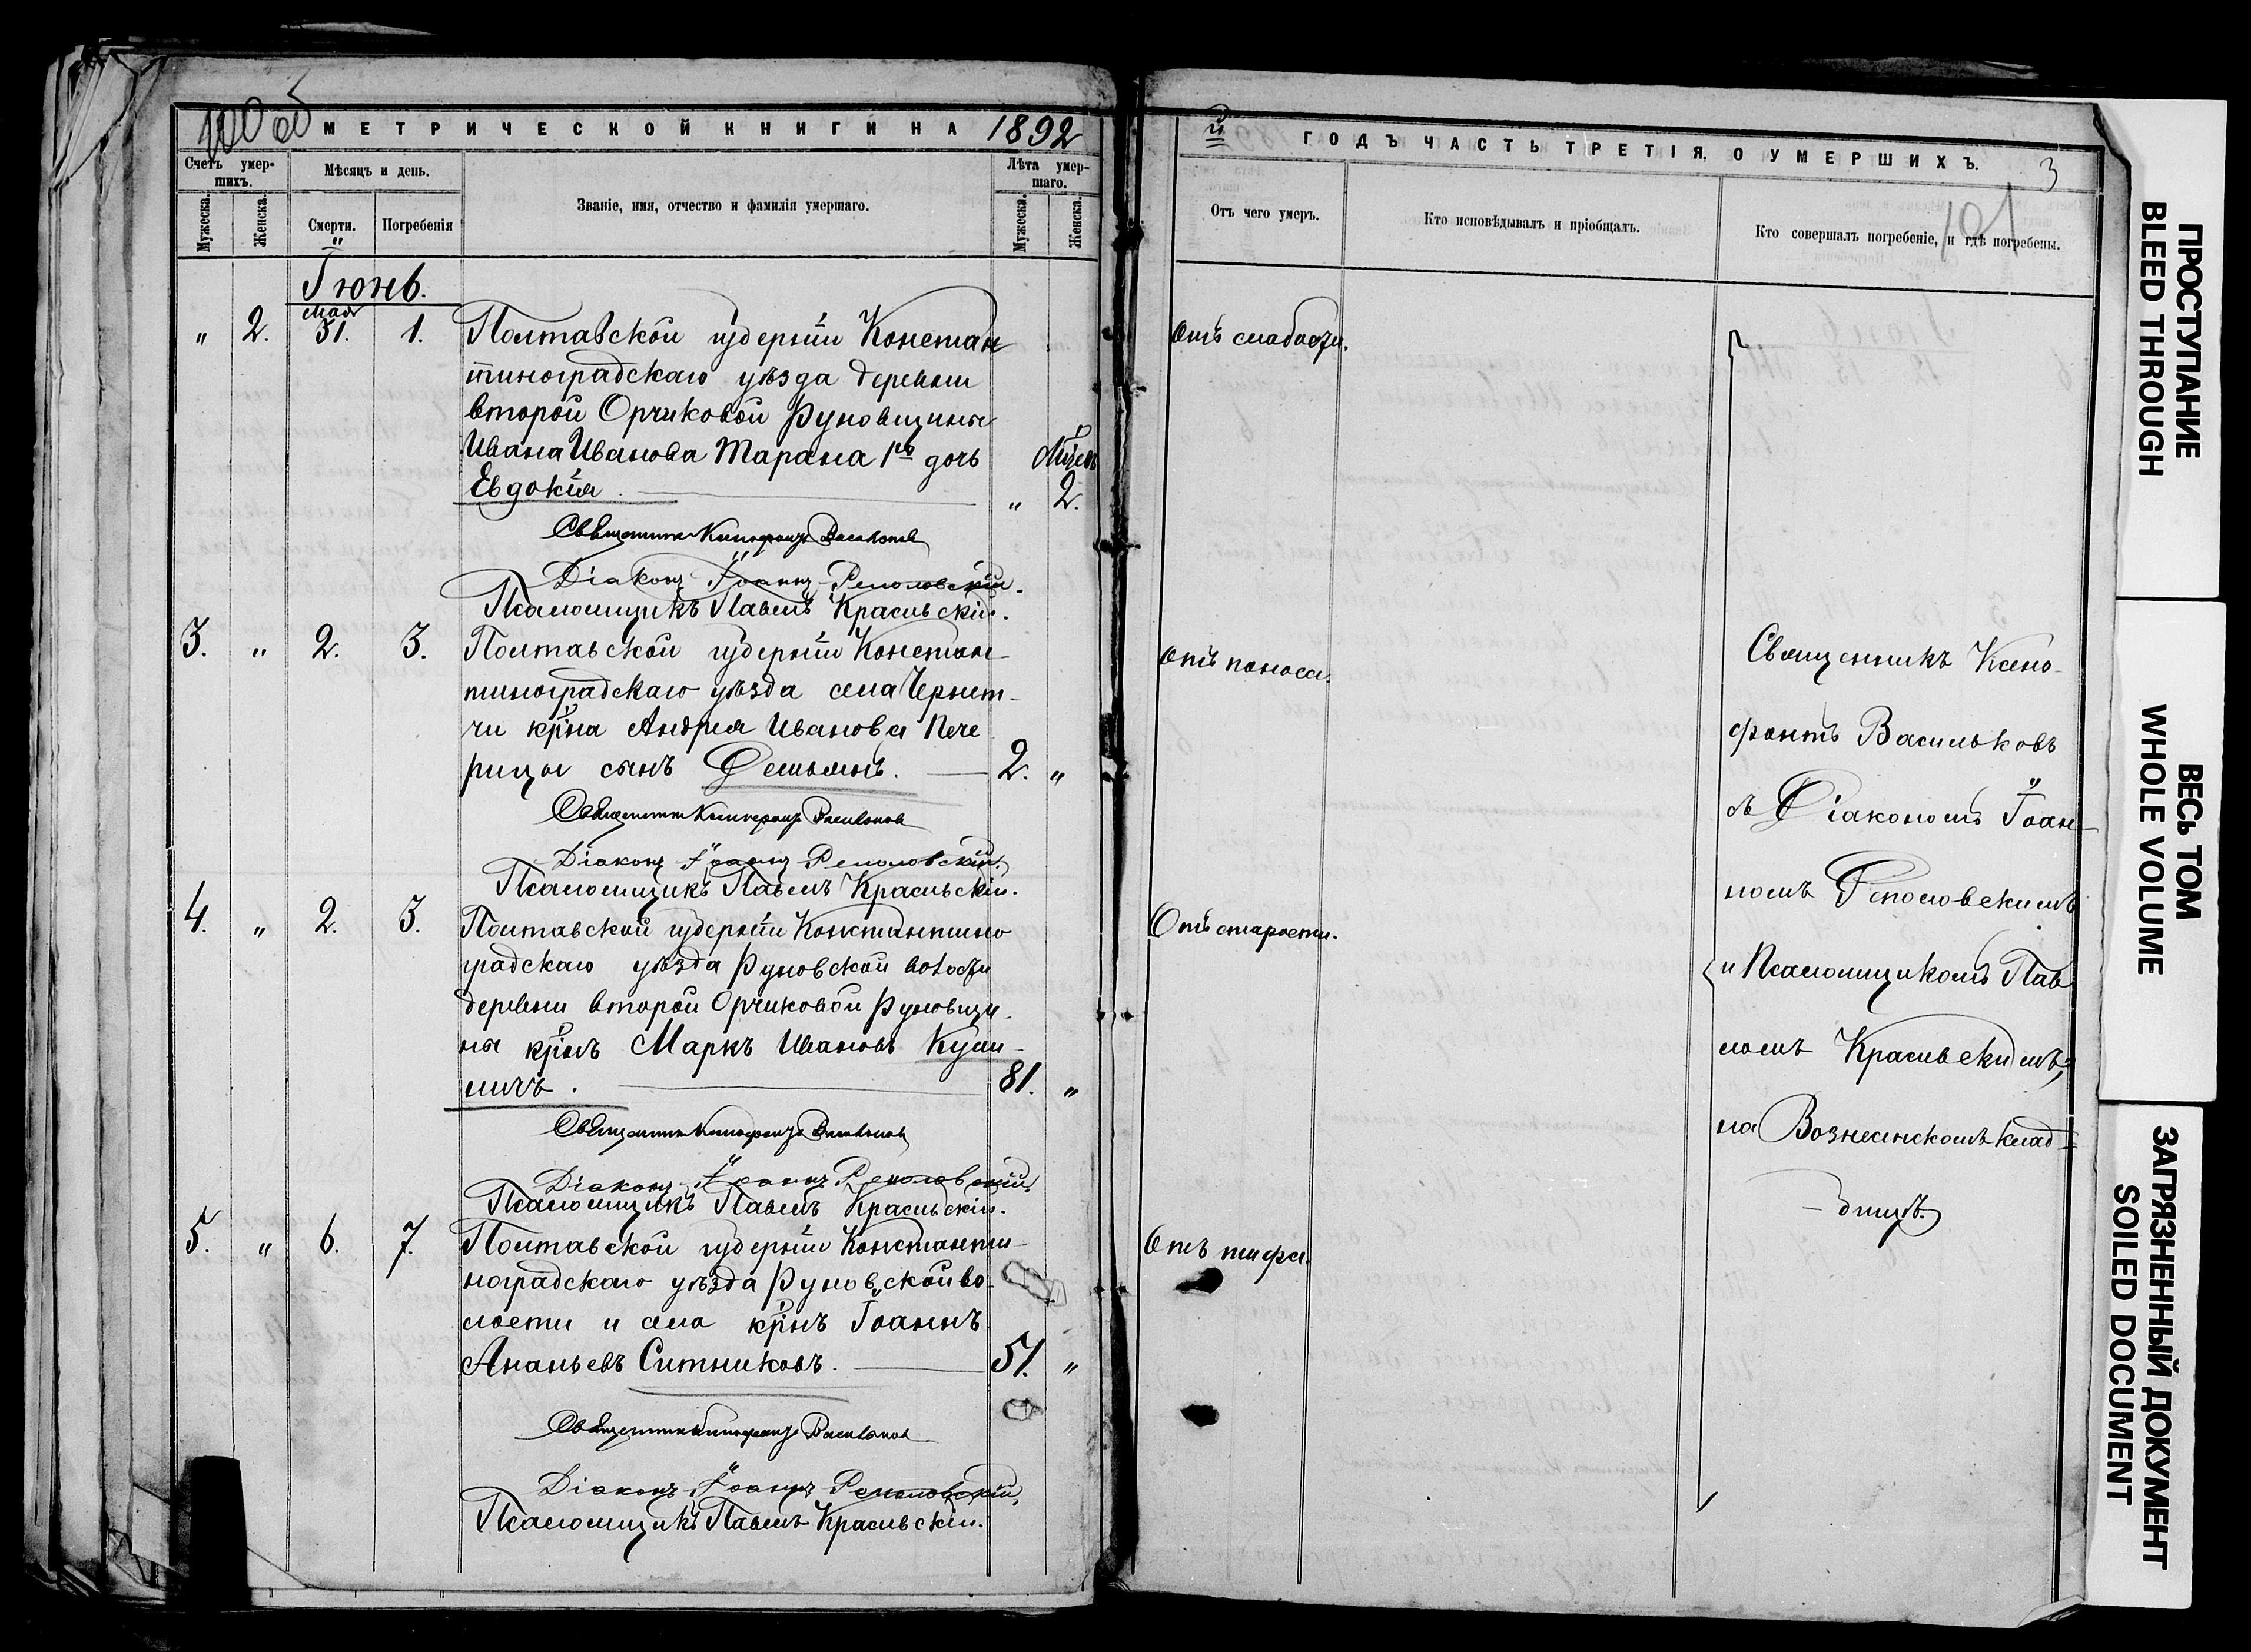 100 об
МЕТРИЧЕСКОЙ КНИГИ НА 1892
Счетъ умер-
шихъ.
Мѣсяцъ и день.
Званіе, имя, отчество и фамилія умершаго.
Лѣта умер-
шаго.
Мужеска.
Женска.
Смерти.
Погребенія
Мужеска.
Женска.
Іюнь.
мая
„ 2. 31. 1. Полтавской губерніи Констан
тиноградскаго уѣзда деревни
второй Орчиковой Руновщины
Ивана Иванова Тарана 1ю дочь
Евдокія „ Мѣсяц. 2.
Священникъ Ксенофонтъ Васильковъ
Діаконъ Іоаннъ Реполовскій.
Псаломщикъ Павелъ Красильскій.
3. „ 2. 3. Полтавской губерніи Констан-
тиноградскаго уѣзда села Чернет-
чи крѣна Андрея Иванова Пече
рицы сынъ Демьянъ. 2. „
Священникъ Ксенофонтъ Васильковъ
Діаконъ Іоаннъ Реполовскій.
Псаломщикъ Павелъ Красильскій.
4. „ 2. 3. Полтавской губерніи Константино
градскаго уѣзда Руновской волости
деревни второй Орчиковой Руновщи-
ны крінъ Маркъ Ивановъ
81. „
Священникъ Ксенофонтъ Васильковъ
Діаконъ Іоаннъ Реполовскій.
Псаломщикъ Павелъ Красильскій.
5. „ 6. 7. Полтавской губерніи Константи-
ноградскаго уѣзда Руновской во-
лости и села крнъ Іоаннъ
Ананьевъ Ситниковъ. 51. „
Священникъ Ксенофонтъ Васильковъ
Діаконъ Іоаннъ Реполовскій,
Псаломщикъ Павелъ Красильскій.
й ГОДЪ ЧАСТЬ ТРЕТІЯ, О УМЕРШИХЪ.
3
101
Отъ чего умеръ.
Кто исповѣдывалъ и пріобщалъ.
Кто совершалъ погребеніе, и гдѣ погребены.
Отъ слабости.
Отъ поноса.
Отъ старости.
Отъ тифа.
Священникъ Ксено-
фонтъ Васильковъ
съ Діакономъ Іоан-
номъ Реполовскимъ
и Псаломщикомъ Пав
ломъ Красильскимъ,
на Вознесенскомъ клад-
бищѣ.
ПРОСТУПАНИЕ
BLEED THROUGH
ВЕСЬ ТОМ
WHOLE VOLUME
ЗАГРЯЗНЕННЫЙ ДОКУМЕНТ
SOILED DOCUMENT